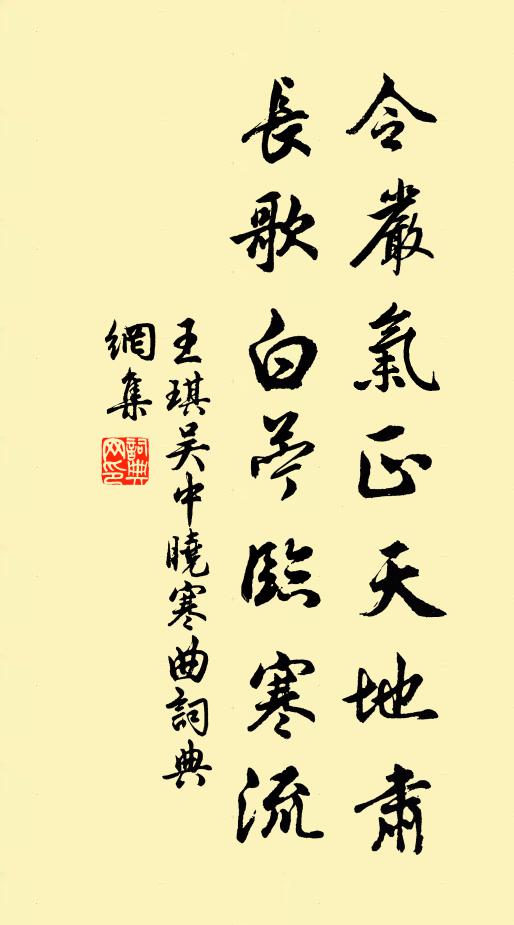 令嚴氣正天地肅
長歌白苧臨寒流
王琪吴中曉寒曲詞典
網集
詞典
网印